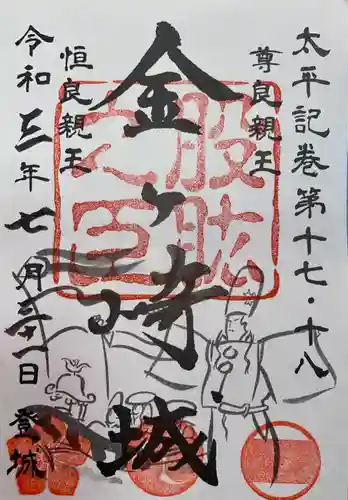 太平記巻第十七・十八
尊良親王
金ヶ崎城
恒良親王
股肱
之臣
令和三年七月三十一日 登城